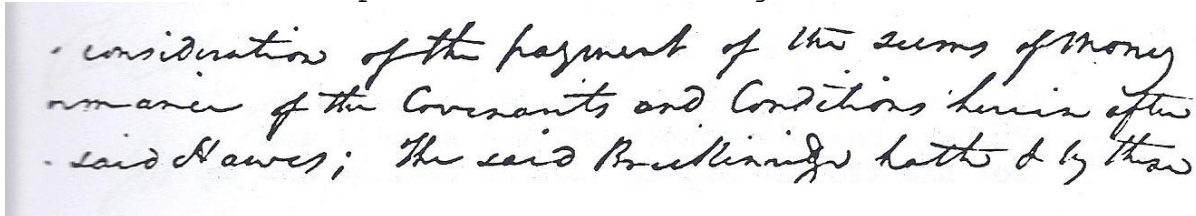 consideration of the payment of the sums of Money
rmance of the Covenants and Conditions herein after
said Hawes; The said Breckinridge hath & by these